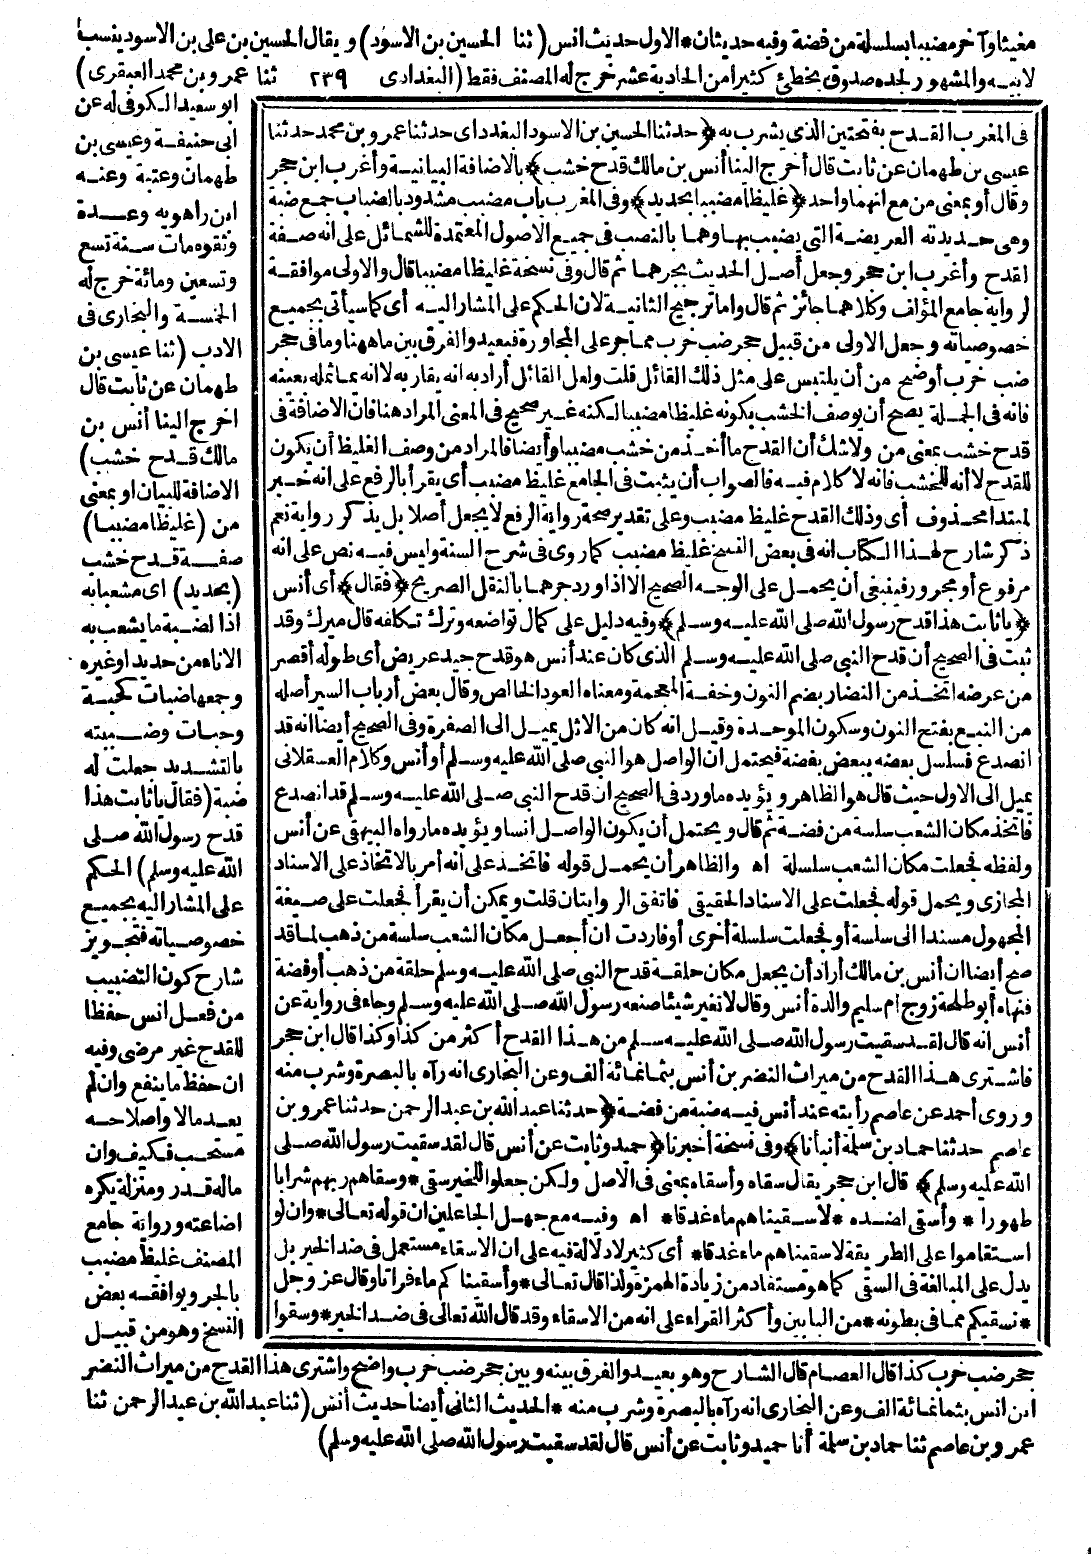 مغيثا وآخر مضببا بسلسلة من فضة وفيه حديثان * الاول حديث انس (ثنا الحسين بن الاسود) ويقال الحسين بن على بن الاسود ينسب
لابيه والمشهور لجده صدوق يخطئ كثيرا من الحادية عشر خرج له المصنف فقط (البغدادى ٢٣٩ ثنا عمرو بن محمد العبقرى)
ابو سعيد الكوفى له عن
ابى حنيفة وعيسى بن
طهمان وعتبة وعنه
ابن راهويه وعدة
وثقوه مات سنة تسع
وتسعين ومائة خرج له
الخمسة والبخارى فى
الادب (ثنا عيسى بن
طهمان عن ثابت قال
اخرج الينا أنس بن
مالك قدح خشب)
الاضافة للبيان او بمعنى
من (غليظا مضببا)
صفة قدح خشب
(بحديد) اى مشعبا به
اذا لضبة ما يشعب به
الاناء من حديد او غيره
وجمعها ضبات كحبة
وحبات وضببته
بالتشديد جعلت له
ضبة (فقال يا ثابت هذا
قدح رسول الله صلى
الله عليه وسلم) الحكم
على المشار اليه بجميع
خصوصياته فتجويز
شارح كون التضبيب
من فعل انس حفظا
للقدح غير مرضى وفيه
ان حفظ ما ينفع وان لم
يعد مالا واصلاحه
مستحب فكيف وان
ماله قدر ومنزلة يكره
اضاعته ورواية جامع
المصنف غليظ مضبب
بالجر ويوافقه بعض
النسخ وهو من قبيل
فى المغرب القدح بفتحتين الذى يشرب به ﴿حدثنا الحسين بن الاسود البغدادى حدثنا عمرو بن محمد حدثنا
عيسى بن طهمان عن ثابت قال أخرج الينا أنس بن مالك قدح خشب﴾ بالاضافة البيانية وأغرب ابن حجر
وقال أو بمعنى من مع انهما واحد ﴿غليظا مضببا بحديد﴾ وفى المغرب باب مضبب مشدود بالضباب جمع ضبة
وهى حديدته العريضة التى يضبب بها وهما بالنصب فى جميع الاصول المعتمدة للشمائل على انه صفة
لقدح وأغرب ابن حجر وجعل أصل الحديث بجرهما ثم قال وفى نسخة غليظا مضببا قال والاولى موافقة
لرواية جامع المؤلف وكلاهما جائز ثم قال واما ترجيح الثانية لان الحكم على المشار اليه أى كما سيأتى بجميع
خصوصياته وجعل الاولى من قبيل جحر ضب خرب مما جر على المجاورة فبعيد والفرق بين ما ههنا وما فى جحر
ضب خرب أوضح من أن يلتبس على مثل ذلك القائل قلت ولعل القائل أراد به انه يقاربه لا انه يماثله بعينه
فانه فى الجملة يصح أن يوصف الخشب بكونه غليظا مضببا لكنه غير صحيح فى المعنى المراد هنا فان الاضافة فى
قدح خشب بمعنى من ولا شك أن القدح ما أخذ من خشب مضببا وأيضا فالمراد من وصف الغليظ أن يكون
للقدح لا أنه للخشب فانه لا كلام فيه فالصواب أن يثبت فى الجامع غليظ مضبب أى يقرأ بالرفع على انه خبر
لمبتدا محذوف أى وذلك القدح غليظ مضبب وعلى تقدير صحة رواية الرفع لا يجعل أصلا بل يذكر رواية نعم
ذكر شارح لهذا الكتاب انه فى بعض النسخ غليظ مضبب كما روى فى شرح السنة وليس فيه نص على انه
مرفوع أو مجرور فينبغى أن يحمل على الوجه الصحيح الا اذا ورد جرهما بالنقل الصريح ﴿فقال﴾ أى أنس
﴿يا ثابت هذا قدح رسول الله صلى الله عليه وسلم﴾ وفيه دليل على كمال تواضعه وترك تكلفه قال ميرك وقد
ثبت فى الصحيح أن قدح النبى صلى الله عليه وسلم الذى كان عند أنس هو قدح جيد عريض أى طوله أقصر
من عرضه اتخذ من النضار بضم النون وخفة المعجمة ومعناه العود الخالص وقال بعض أرباب السير أصله
من النبع بفتح النون وسكون الموحدة وقيل انه كان من الاثل يميل الى الصفرة وفى الصحيح أيضا انه قد
انصدع فسلسل بعضه ببعض بفضة فيحتمل ان الواصل هو النبى صلى الله عليه وسلم أو أنس وكلام العسقلانى
يميل الى الاول حيث قال هو الظاهر ويؤيده ما ورد فى الصحيح ان قدح النبى صلى الله عليه وسلم قد انصدع
فاتخذ مكان الشعب سلسة من فضة ثم قال ويحتمل أن يكون الواصل انسا ويؤيده ما رواه البيهقى عن أنس
ولفظه فجعلت مكان الشعب سلسلة اه والظاهر أن يحمل قوله فاتخذ على أنه أمر بالاتخاذ على الاسناد
المجازى ويحمل قوله فجعلت على الاسناد الحقيقى فاتفق الروايتان قلت ويمكن أن يقرأ فجعلت على صيغة
المجهول مسندا الى سلسة أو فجعلت سلسلة أخرى أو فاردت ان أجعل مكان الشعب سلسة من ذهب لما قد
صح أيضا ان أنس بن مالك أراد أن يجعل مكان حلقة قدح النبى صلى الله عليه وسلم حلقة من ذهب أو فضة
فنهاه أبو طلحة زوج ام سليم والدة أنس وقال لا تغير شيئا صنعه رسول الله صلى الله عليه وسلم وجاء فى رواية عن
أنس انه قال لقد سقيت رسول الله صلى الله عليه وسلم من هذا القدح أكثر من كذا وكذا قال ابن حجر
فاشترى هذا القدح من ميراث النضر بن أنس بثمانمائة ألف وعن البخارى انه رآه بالبصرة وشرب منه
وروى أحمد عن عاصم رأيته عند أنس فيه ضبة من فضة ﴿حدثنا عبد الله بن عبد الرحمن حدثنا عمرو بن
عاصم حدثنا حماد بن سلمة أنبأنا﴾ وفى نسخة أخبرنا ﴿حميد وثابت عن أنس قال لقد سقيت رسول الله صلى
الله عليه وسلم﴾ قال ابن حجر يقال سقاه وأسقاه بمعنى فى الاصل ولكن جعلوا للخير سقى * وسقاهم ربهم شرابا
طهورا * وأسقى لضده * لاسقيناهم ماء غدقا * اه وفيه مع جهل الجاعلين ان قوله تعالى * وان لو
استقاموا على الطريقة لاسقيناهم ماء غدقا * أى كثير لا دلالة فيه على ان الاسقاء مستعمل فى ضد الخير بل
يدل على المبالغة فى السقى كما هو مستفاد من زيادة الهمزة ولذا قال تعالى * وأسقيناكم ماء فراتا وقال عز وجل
* نسقيكم مما فى بطونه * من البابين وأكثر القراء على انه من الاسقاء وقد قال الله تعالى فى ضد الخير * وسقوا
جحر ضب خرب كذا قال العصام قال الشارح وهو بعيد والفرق بينه وبين جحر ضب خرب واضح واشترى هذا القدح من ميراث النضر
ابن انس بثمانمائة الف وعن البخارى انه رآه بالبصرة وشرب منه * الحديث الثانى أيضا حديث أنس (ثنا عبد الله بن عبد الرحمن ثنا
عمرو بن عاصم ثنا حماد بن سلمة أنا حميد وثابت عن أنس قال لقد سقيت رسول الله صلى الله عليه وسلم)